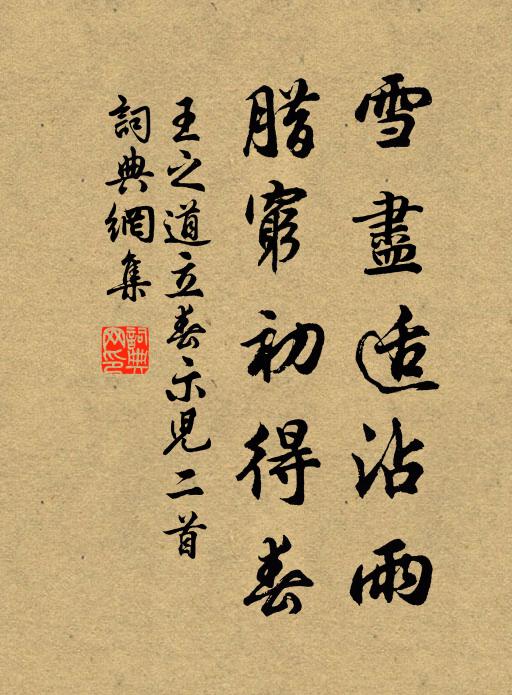 雪盡适沾雨
腊窮初得春
王之道立春示兒二首
詞典網集
詞典
网印